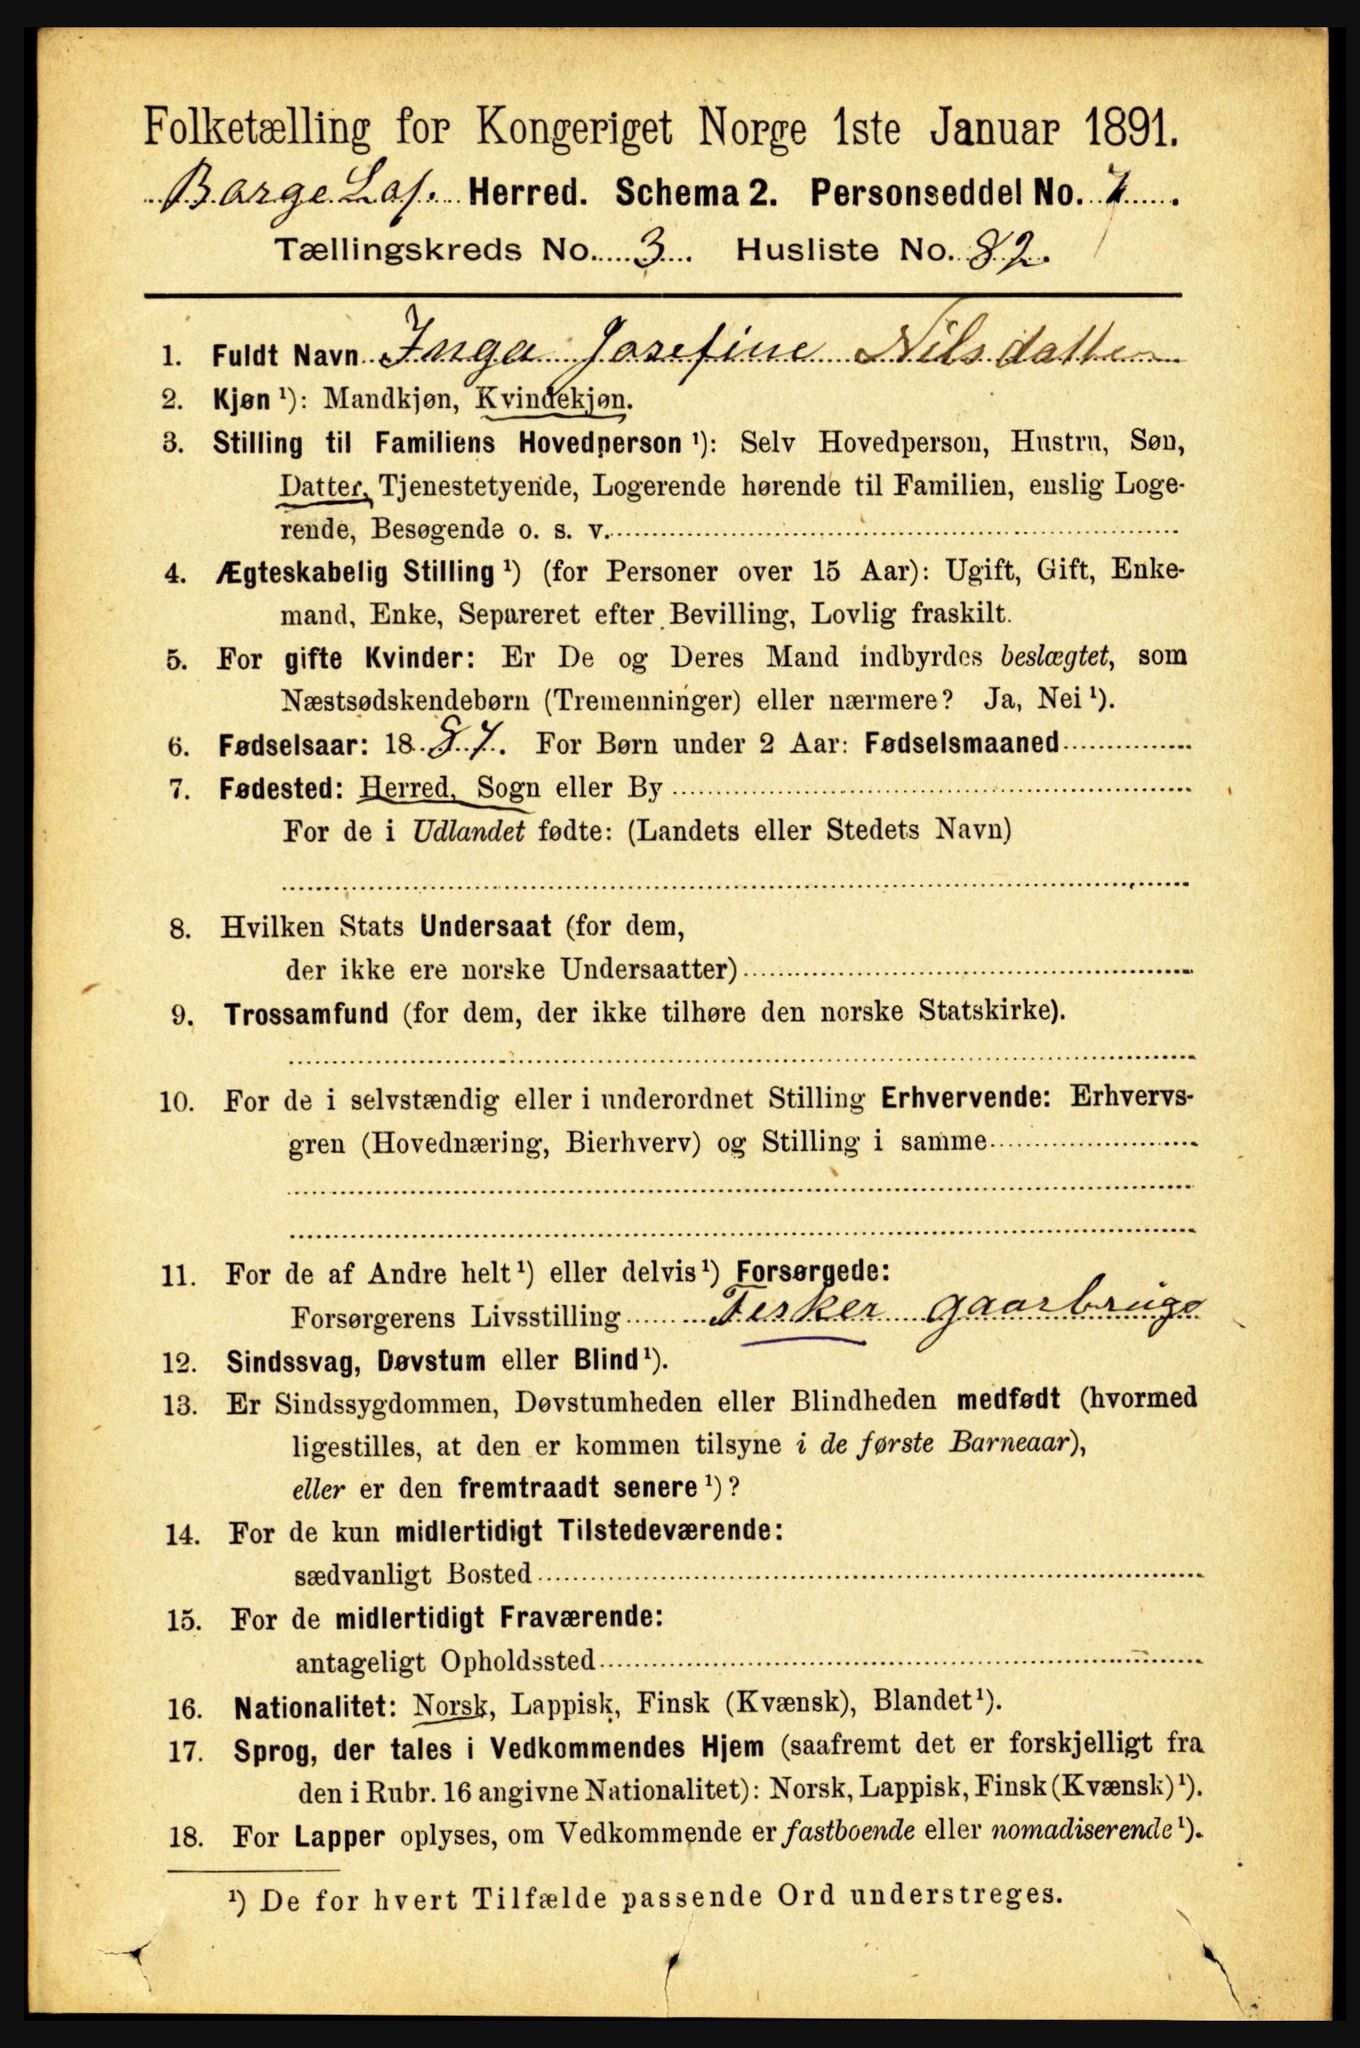 Folketælling for Kongeriget Norge 1ste Januar 1891.
Borge Lof. Herred. Schema 2. Personseddel No. 7.
Tællingskreds No. 3. Husliste No. 82.
1. Fuldt Navn Inga Josefine Nilsdatter
2. Kjøn ¹): Mandkjøn, Kvindekjøn.
3. Stilling til Familiens Hovedperson ¹): Selv Hovedperson, Hustru, Søn,
Datter, Tjenestetyende, Logerende hørende til Familien, enslig Loge-
rende, Besøgende o. s. v.
4. Ægteskabelig Stilling ¹) (for Personer over 15 Aar): Ugift, Gift, Enke-
mand, Enke, Separeret efter Bevilling, Lovlig fraskilt.
5. For gifte Kvinder: Er De og Deres Mand indbyrdes beslægtet, som
Næstsødskendebørn (Tremenninger) eller nærmere? Ja, Nei ¹).
6. Fødselsaar: 1887. For Børn under 2 Aar: Fødselsmaaned
7. Fødested: Herred, Sogn eller By
For de i Udlandet fødte: (Landets eller Stedets Navn)
8. Hvilken Stats Undersaat (for dem,
der ikke ere norske Undersaatter)
9. Trossamfund (for dem, der ikke tilhøre den norske Statskirke).
10. For de i selvstændig eller i underordnet Stilling Erhvervende: Erhvervs-
gren (Hovednæring, Bierhverv) og Stilling i samme
11. For de af Andre helt ¹) eller delvis ¹) Forsørgede:
Forsørgerens Livsstilling Fisker gaarbruge
12. Sindssvag, Døvstum eller Blind ¹).
13. Er Sindssygdommen, Døvstumheden eller Blindheden medfødt (hvormed
ligestilles, at den er kommen tilsyne i de første Barneaar),
eller er den fremtraadt senere ¹)?
14. For de kun midlertidigt Tilstedeværende:
sædvanligt Bosted
15. For de midlertidigt Fraværende:
antageligt Opholdssted
16. Nationalitet: Norsk, Lappisk, Finsk (Kvænsk), Blandet ¹).
17. Sprog, der tales i Vedkommendes Hjem (saafremt det er forskjelligt fra
den i Rubr. 16 angivne Nationalitet): Norsk, Lappisk, Finsk (Kvænsk) ¹).
18. For Lapper oplyses, om Vedkommende er fastboende eller nomadiserende ¹).
¹) De for hvert Tilfælde passende Ord understreges.